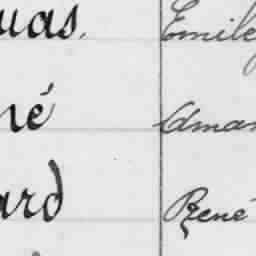 uas. Emile
né Aman
ard René